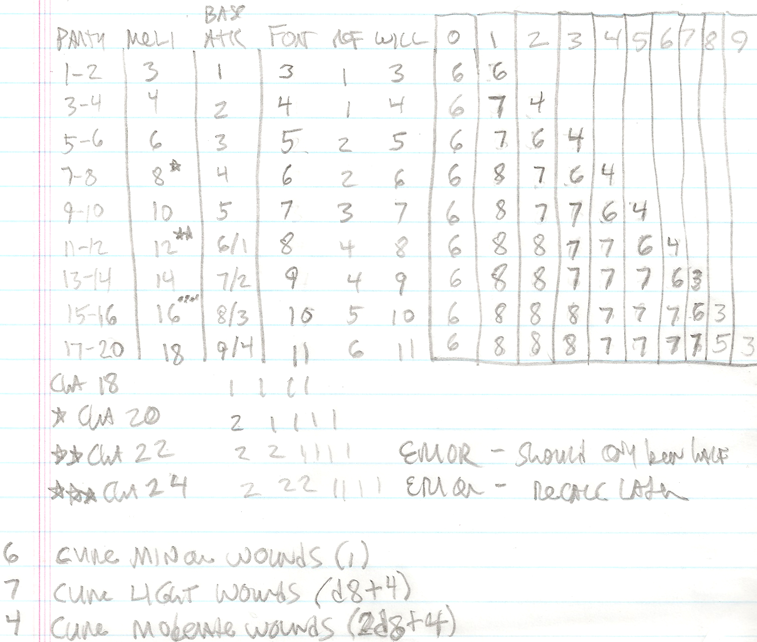 BASE
PARTY MELI ATK FORT REF WILL 0 1 2 3 4 5 6 7 8 9
1-2 3 1 3 1 3 6 6
3-4 4 2 4 1 4 6 7 4
5-6 6 3 5 2 5 6 7 6 4
7-8 8* 4 6 2 6 6 8 7 6 4
9-10 10 5 7 3 7 6 8 7 7 6 4
11-12 12** 6/1 8 4 8 6 8 8 7 7 6 4
13-14 14 7/2 9 4 9 6 8 8 7 7 7 6 3
15-16 16*** 8/3 10 5 10 6 8 8 8 7 7 7 6 3
17-20 18 9/4 11 6 11 6 8 8 8 7 7 7 7 5 3
CHA 18 1 1 1 1
* CHA 20 2 1 1 1 1
** CHA 22 2 2 1 1 1 1 ERROR - SHOULD ONLY BEEN HALF
*** CHA 24 2 2 2 1 1 1 1 ERROR - RECALC LATER
6 CURE MINOR WOUNDS (1)
7 CURE LIGHT WOUNDS (d8+4)
4 CURE MODERATE WOUNDS (2d8+4)